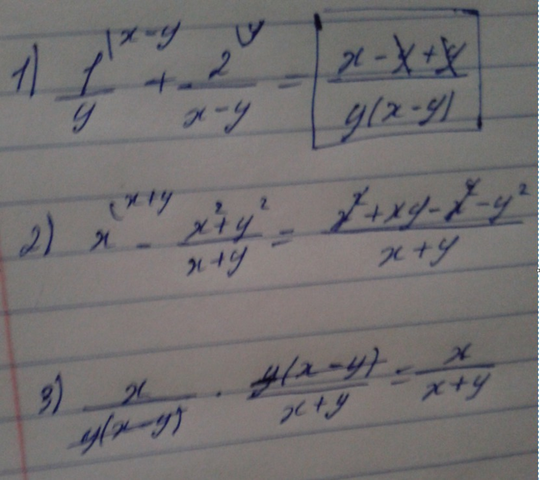 1) 1/y (x-y + 2/x-y (y = x-y+y/y(x-y)
2) x (x+y - x²+y²/x+y = x²+xy-x²-y²/x+y
3) x/y(x-y) · y(x-y)/x+y = x/x+y